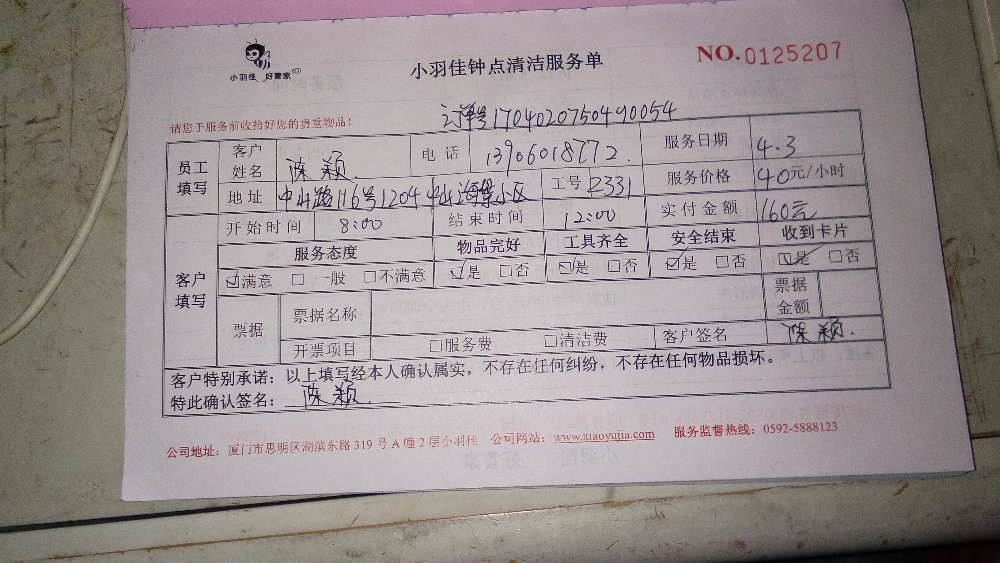 小羽佳 好管家
小羽佳钟点清洁服务单
NO.0125207
请您于服务前收拾好您的贵重物品!
订单号1704020750490054
员工填写
客户姓名 陈颖 电话 13906018772. 服务日期 4.3
地址 中山路116号1204 中山海景小区 工号 P2331 服务价格 40元/小时
客户填写
开始时间 8:00 结束时间 12:00 实付金额 160元
服务态度 物品完好 工具齐全 安全结束 收到卡片
☑满意 □一般 □不满意 ☑是 □否 ☑是 □否 ☑是 □否 ☑是 □否
票据 票据名称 票据金额
开票项目 □服务费 □清洁费 客户签名 陈颖.
客户特别承诺：以上填写经本人确认属实，不存在任何纠纷，不存在任何物品损坏。
特此确认签名： 陈颖.
公司地址：厦门市思明区湖滨东路 319 号 A 幢 2 层小羽佳 公司网站：www.xiaoyujia.com 服务监督热线：0592-5888123